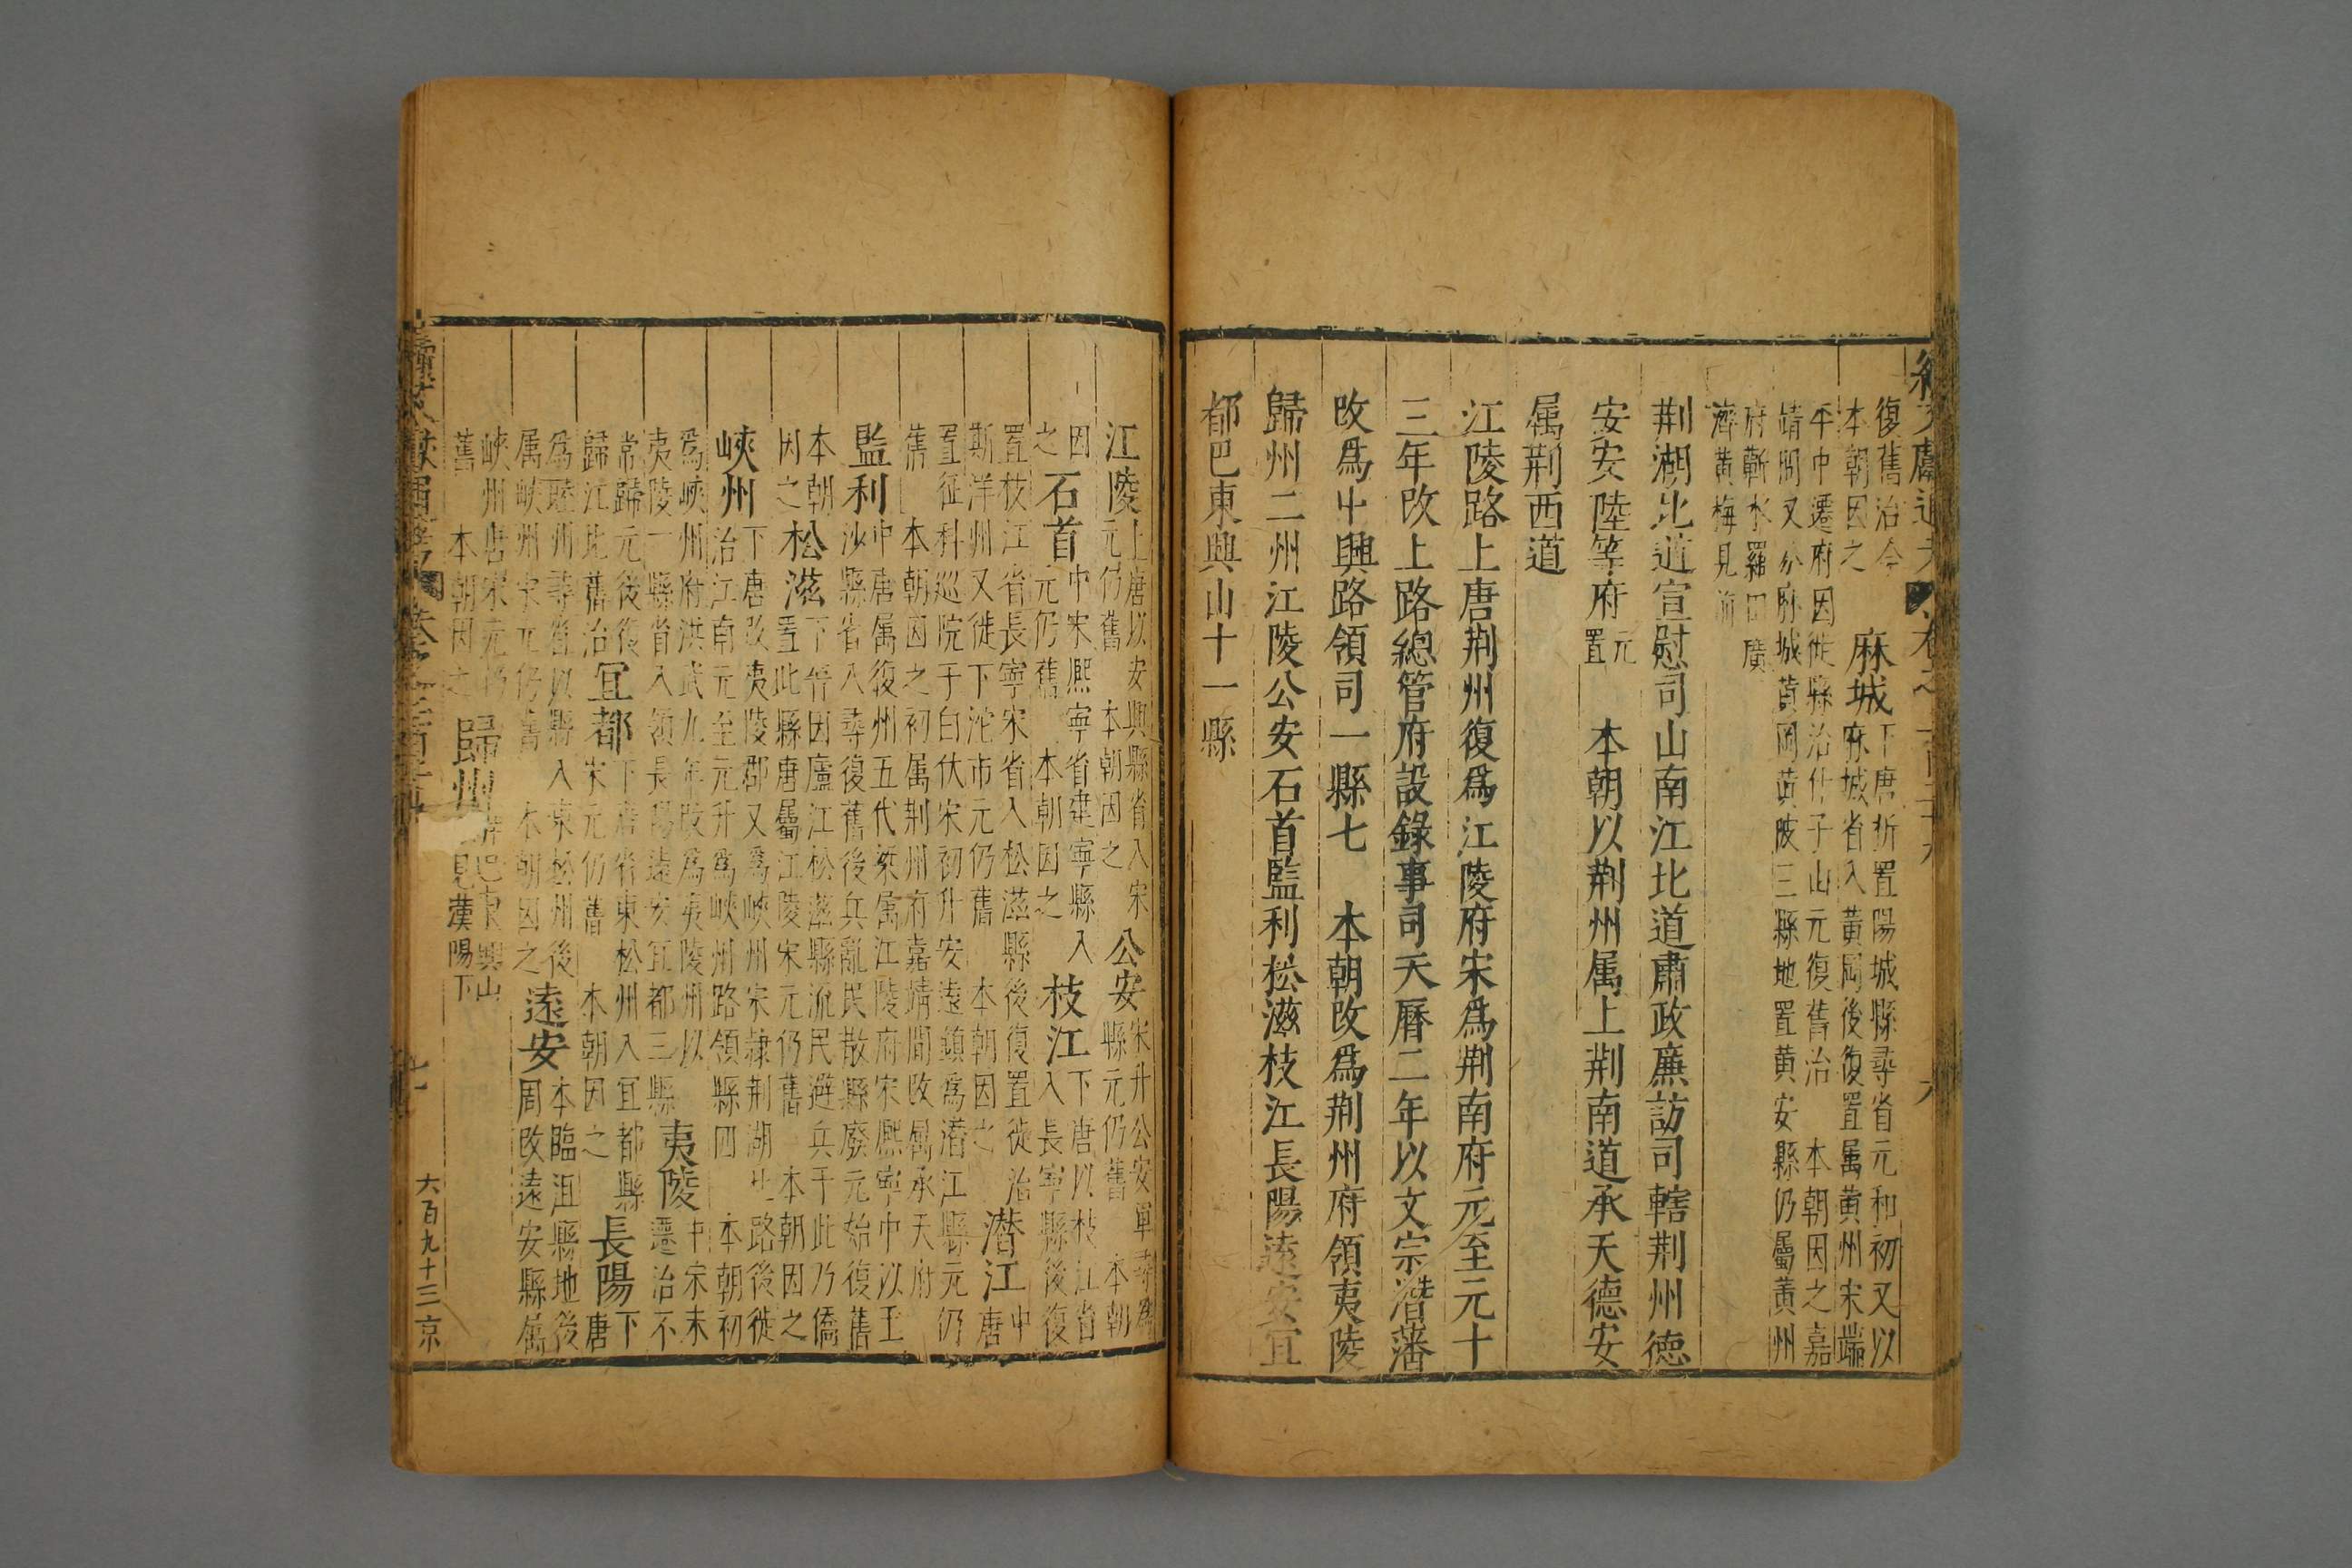 復舊治今
本朝因之
麻城
下唐析置陽城縣尋省元和初又以
麻城省入黃岡後復置属黃州宋端
平中遷府因徙縣治什子山元復舊治 本朝因之嘉
靖間又分麻城黃岡黃陂三縣地置黃安縣仍屬黃州
府蘄水羅田廣
濟黃梅見前
荆湖北道宣慰司山南江北道肅政廉訪司轄荆州德
安安陸等府
元
置
本朝以荆州属上荆南道承天德安
属荆西道
江陵路上唐荆州復爲江陵府宋爲荆南府元至元十
三年改上路總管府設錄事司天曆二年以文宗潛藩
改爲中興路領司一縣七 本朝改爲荆州府領夷陵
歸州二州江陵公安石首監利松滋枝江長陽遠安宜
都巴東興山十一縣
江陵
上唐以安興縣省入宋
元仍舊 本朝因之
公安
宋升公安軍尋爲
縣元仍舊 本朝
因
之
石首
中宋熙寧省建寧縣入
元仍舊 本朝因之
枝江
下唐以枝江省
入長寧縣後復
置枝江省長寧宋省入松滋縣後復置徙治
斯洋州又徙下沱市元仍舊 本朝因之
潛江
中
唐
置征科巡院于白伏宋初升安遠鎮爲潛江縣元仍
舊 本朝因之初属荆州府嘉靖間改属承天府
監利
中唐属復州五代梁属江陵府宋熙寧中以玉
沙縣省入尋復舊後兵亂民散縣廢元始復舊
本朝
因之
松滋
下晉因廬江松滋縣流民避兵于此乃僑
置此縣唐屬江陵宋元仍舊 本朝因之
峽州
下唐改夷陵郡又爲峽州宋隸荆湖北路後徙
治江南元至元升爲峽州路領縣四 本朝初
爲峽州府洪武九年改爲夷陵州以
夷陵一縣省入領長陽遠安宜都三縣
夷陵
中宋末
遷治不
常歸元後復
歸江北舊治
宜都
下唐省東松州入宜都縣
宋元仍舊 本朝因之
長陽
下
唐
爲睦州尋省以縣入東松州後
属峽州宋元仍舊 本朝因之
遠安
本臨沮縣地後
周改遠安縣属
峽州唐宋元仍
舊 本朝因之
歸州
巴東興山
見漢陽下
七
六百九十三京